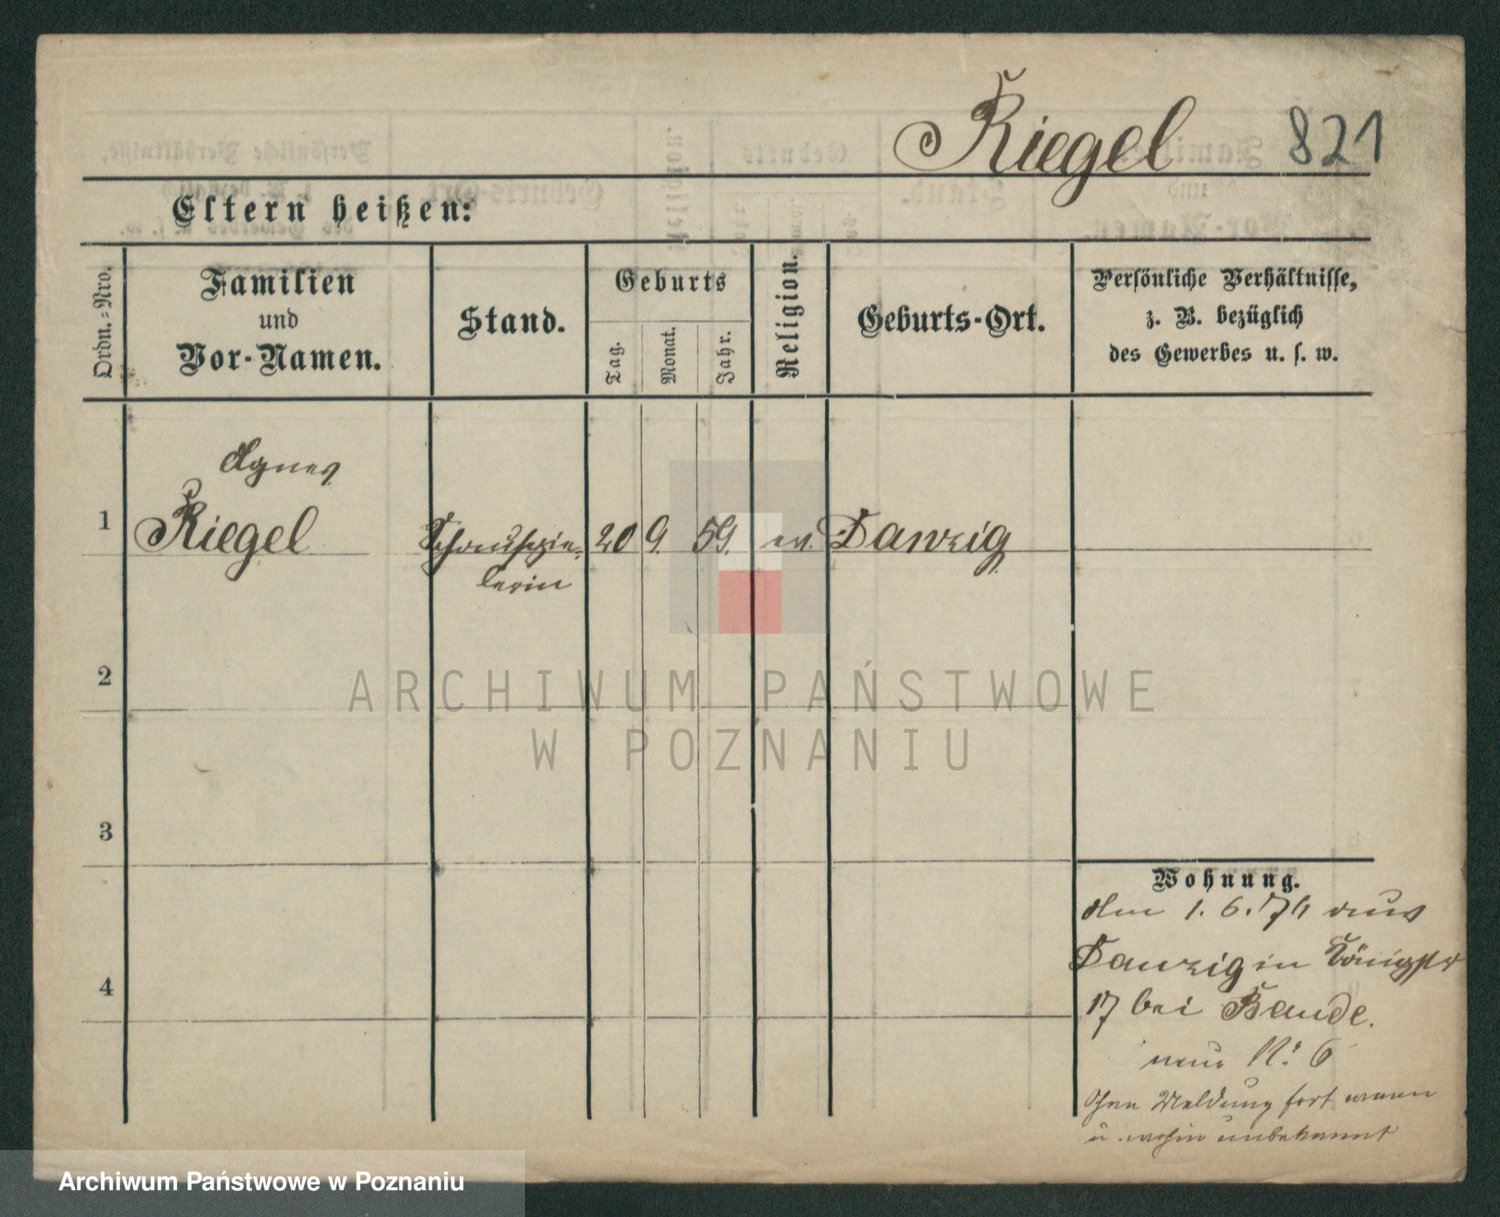 Riegel 821
Eltern heißen:
Ordn.=Nro.
Familien
und
Vor-Namen.
Stand.
Geburts
Tag.
Monat.
Jahr.
Religion.
Geburts-Ort.
Persönliche Verhältnisse,
z. B. bezüglich
des Gewerbes u. s. w.
Agnes
1 Riegel Schauspie- 20 9. 59. ev. Danzig
lerin
2
3
4
Wohnung.
Am 1. 6. 74 aus
Danzig in Königstr
17 bei Baude.
neue N: 6
Ohne Meldung fort wann
u. wohin unbekannt
ARCHIWUM PAŃSTWOWE
W POZNANIU
Archiwum Państwowe w Poznaniu